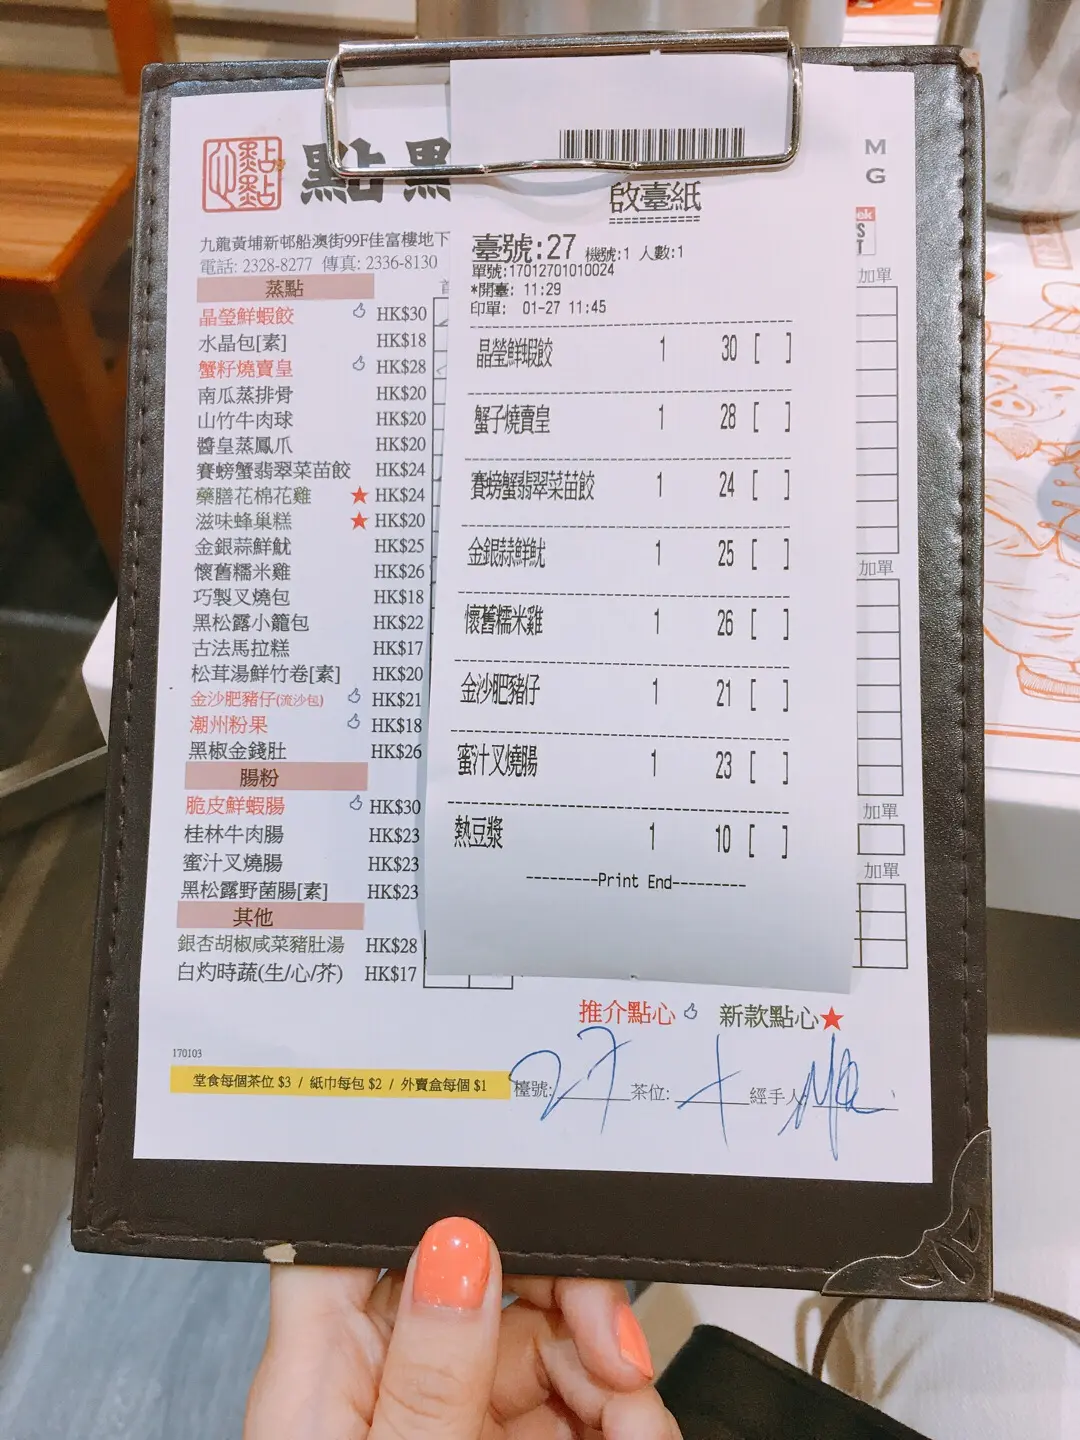 點
心
點
點
點
M
G
啟臺紙
九龍黃埔新邨船澳街99F佳富樓地下
電話: 2328-8277 傳真: 2336-8130
臺號:27 機號:1 人數:1
單號:17012701010024
*開臺: 11:29
印單: 01-27 11:45
加單
蒸點
晶瑩鮮蝦餃 HK$30
水晶包[素] HK$18
蟹籽燒賣皇 HK$28
南瓜蒸排骨 HK$20
山竹牛肉球 HK$20
醬皇蒸鳳爪 HK$20
賽螃蟹翡翠菜苗餃 HK$24
藥膳花棉花雞 ★ HK$24
滋味蜂巢糕 ★ HK$20
金銀蒜鮮魷 HK$25
懷舊糯米雞 HK$26
巧製叉燒包 HK$18
黑松露小籠包 HK$22
古法馬拉糕 HK$17
松茸湯鮮竹卷[素] HK$20
金沙肥豬仔(流沙包) HK$21
潮州粉果 HK$18
黑椒金錢肚 HK$26
腸粉
脆皮鮮蝦腸 HK$30
桂林牛肉腸 HK$23
蜜汁叉燒腸 HK$23
黑松露野菌腸[素] HK$23
其他
銀杏胡椒咸菜豬肚湯 HK$28
白灼時蔬(生/心/芥) HK$17
晶瑩鮮蝦餃 1 30 [ ]
蟹子燒賣皇 1 28 [ ]
賽螃蟹翡翠菜苗餃 1 24 [ ]
金銀蒜鮮魷 1 25 [ ]
懷舊糯米雞 1 26 [ ]
金沙肥豬仔 1 21 [ ]
蜜汁叉燒腸 1 23 [ ]
熱豆漿 1 10 [ ]
---------Print End---------
加單
加單
加單
推介點心 新款點心★
170103
堂食每個茶位 $3 / 紙巾每包 $2 / 外賣盒每個 $1
檯號: 27 茶位: 經手人